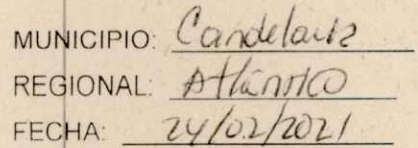 MUNICIPIO: Candelaria
REGIONAL: Atlántico
FECHA: 24/02/2021